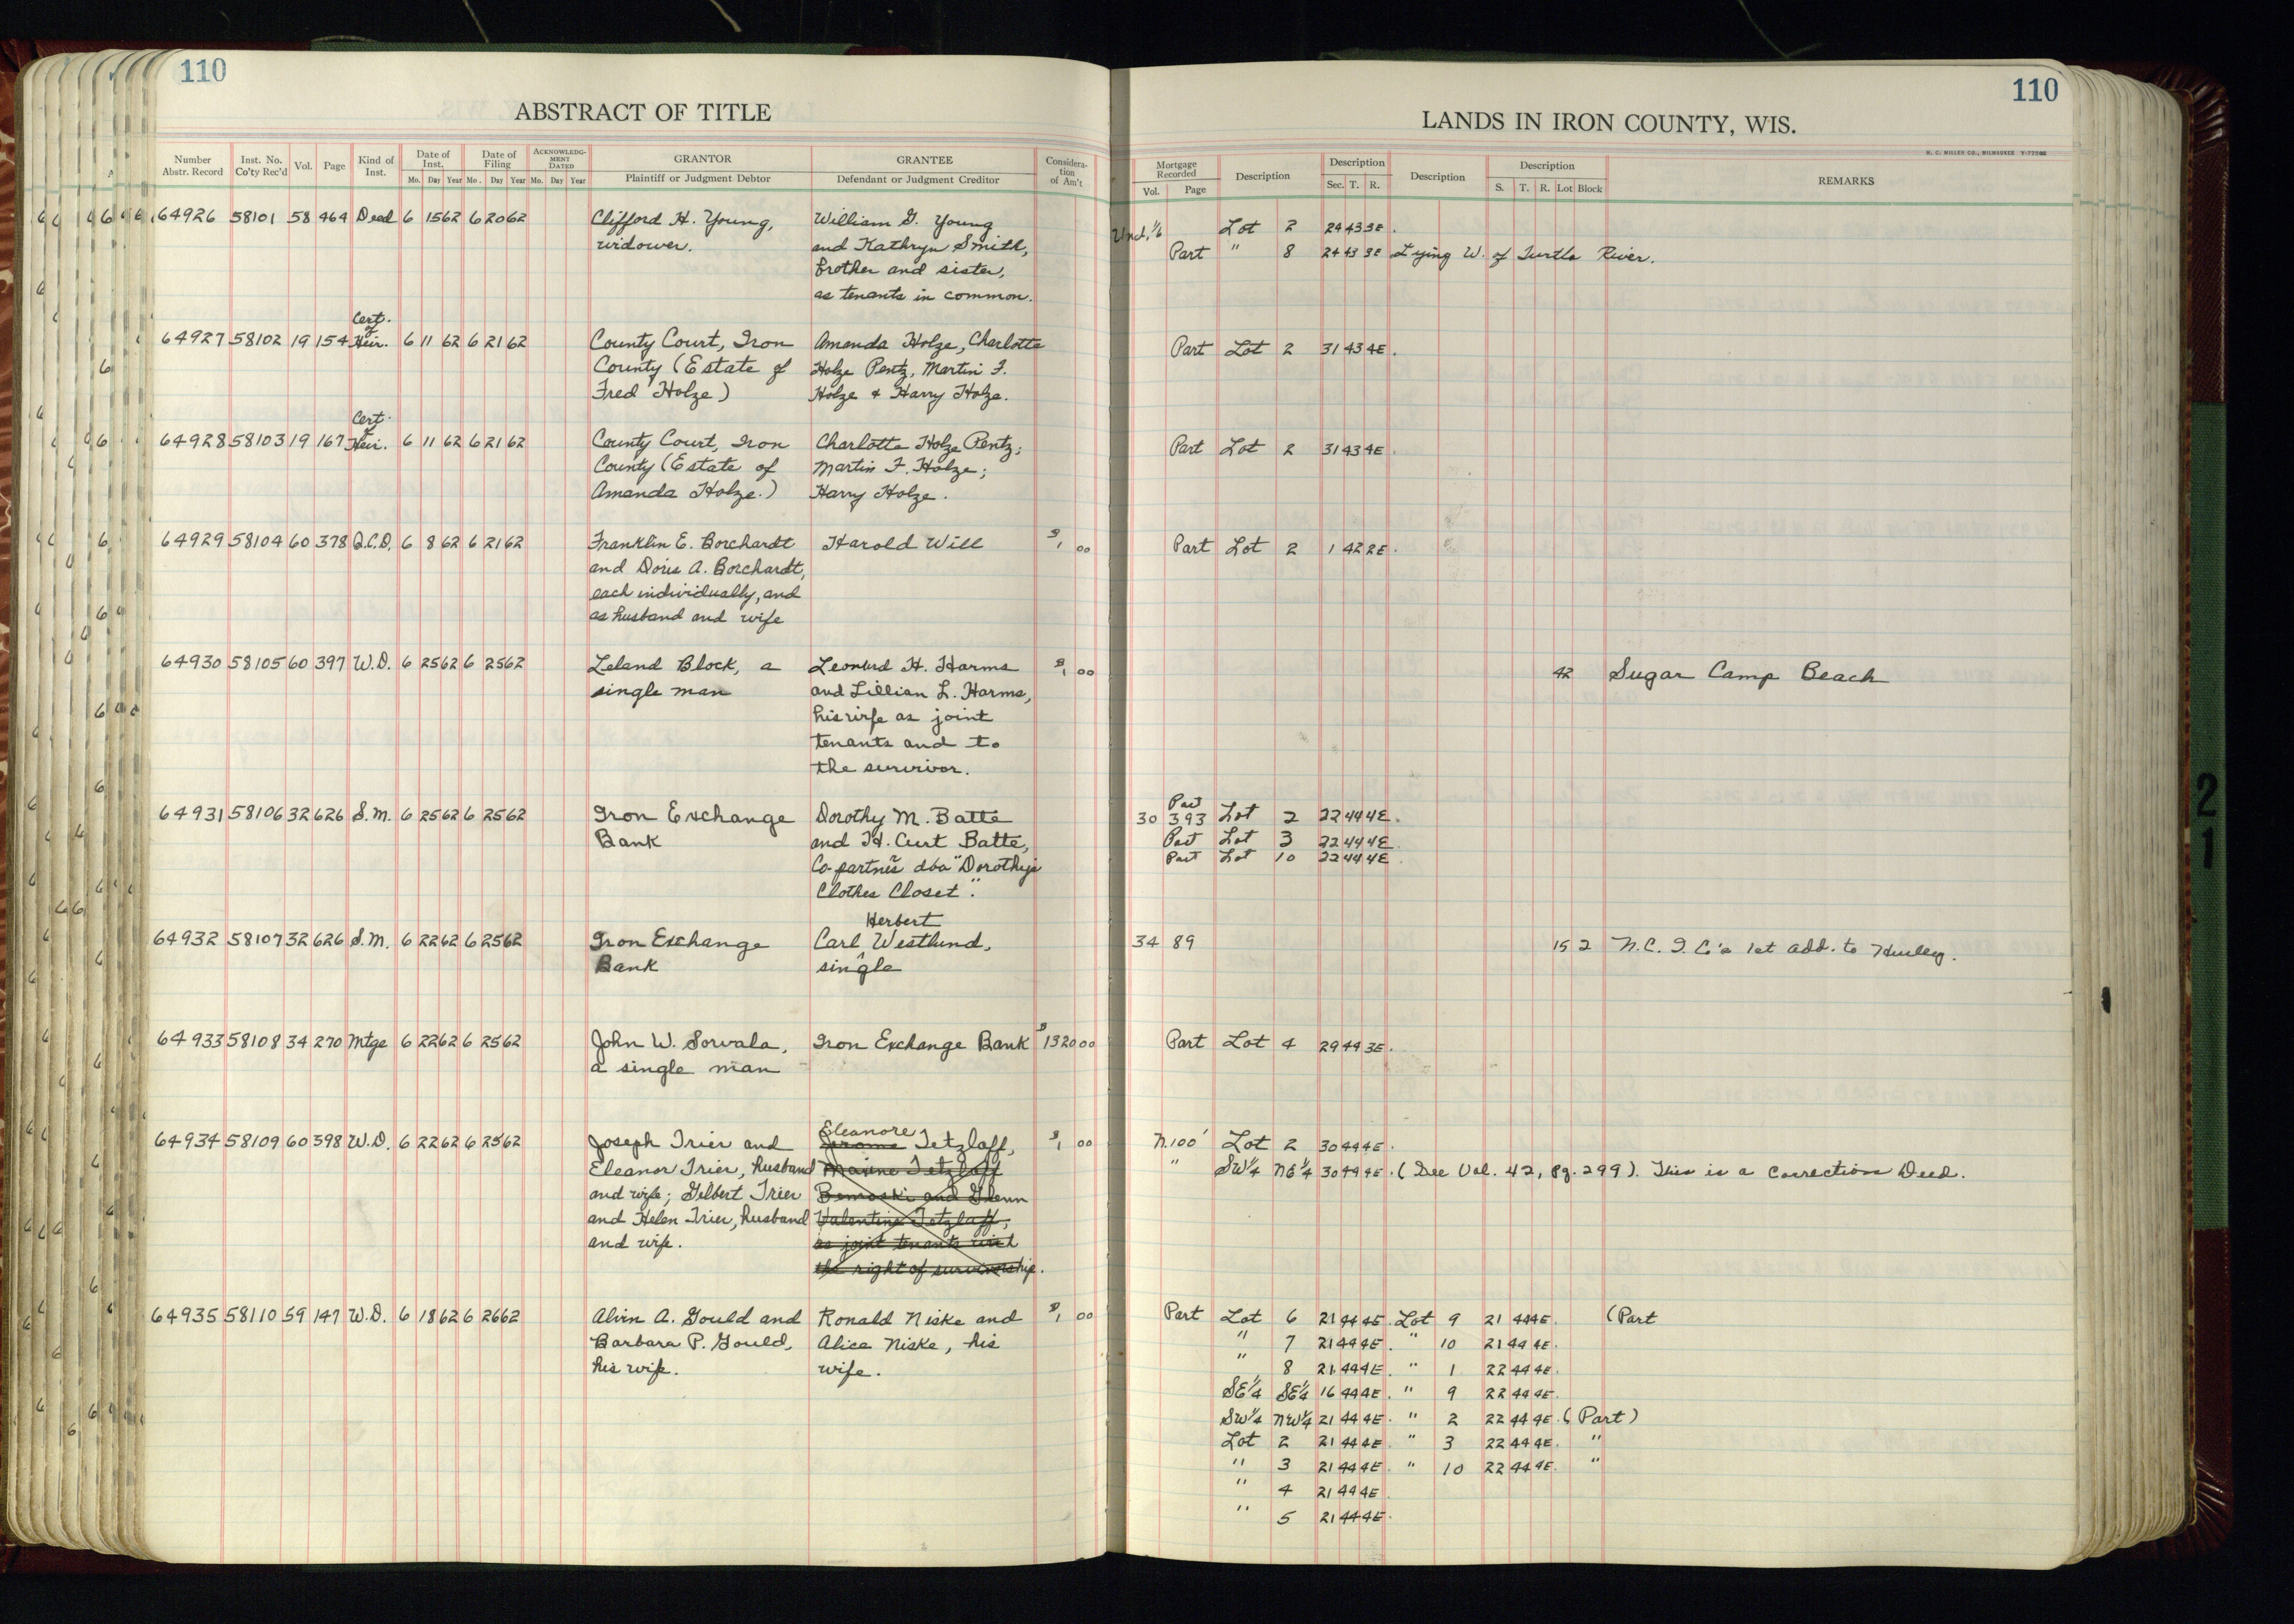 110
ABSTRACT OF TITLE
Number Abstr. Record Inst. No. Co'ty Rec'd Vol. Page Kind of Inst. Date of Inst. Mo. Day Year Date of Filing Mo. Day Year ACKNOWLEDG-MENT DATED Mo. Day Year GRANTOR Plaintiff or Judgment Debtor GRANTEE Defendant or Judgment Creditor Considera-tion of Am't
64926 58101 58 464 Deed 6 15 62 6 20 62 Clifford H. Young, William G. Young
widower. and Kathryn Smith,
brother and sister,
as tenants in common.
Cert. of
64927 58102 19 154 Heir. 6 11 62 6 21 62 County Court, Iron Amanda Holze, Charlotte
County (Estate of Holze Pentz, Martin F.
Fred Holze) Holze & Harry Holze.
Cert. of
64928 58103 19 167 Heir. 6 11 62 6 21 62 County Court, Iron Charlotte Holze Pentz;
County (Estate of Martin F. Holze;
Amanda Holze.) Harry Holze.
64929 58104 60 378 Q.C.D. 6 8 62 6 21 62 Franklin E. Borchardt Harold Will $1 00
and Doris A. Borchardt,
each individually, and
as husband and wife
64930 58105 60 397 W.D. 6 25 62 6 25 62 Leland Block, a Leonard H. Harms $1 00
single man and Lillian L. Harms,
his wife as joint
tenants and to
the survivor.
64931 58106 32 626 S.M. 6 25 62 6 25 62 Iron Exchange Dorothy M. Batte
Bank and H. Curt Batte,
Co-partners dba "Dorothy's
Clothes Closet".
Herbert
64932 58107 32 626 S.M. 6 22 62 6 25 62 Iron Exchange Carl Westlund,
Bank single
64933 58108 34 270 Mtge 6 22 62 6 25 62 John W. Sorvala, Iron Exchange Bank $1320 00
a single man
Eleanore
64934 58109 60 398 W.D. 6 22 62 6 25 62 Joseph Trier and Jerome Tetzlaff, $1 00
Eleanor Trier, husband Maxine Tetzlaff
and wife; Gilbert Trier Bemoski and Glenn
and Helen Trier, husband Valentine Tetzlaff,
and wife. as joint tenants with
the right of survivorship.
64935 58110 59 147 W.D. 6 18 62 6 26 62 Alvin A. Gould and Ronald Niske and $1 00
Barbara P. Gould, Alice Niske, his
his wife. wife.
110
LANDS IN IRON COUNTY, WIS.
H. C. MILLER CO., MILWAUKEE
Mortgage Recorded Vol. Page Description Description Sec. T. R. Description Description S. T. R. Lot Block REMARKS
Und. 1/6 Lot 2 24 43 3E.
Part " 8 24 43 3E Lying W. of Turtle River.
Part Lot 2 31 43 4E.
Part Lot 2 31 43 4E.
Part Lot 2 1 42 2E.
42 Sugar Camp Beach
Part
30 393 Lot 2 22 44 4E.
Part Lot 3 22 44 4E.
Part Lot 10 22 44 4E.
34 89 15 2 N.C. I. Co's 1st Add. to Hurley.
Part Lot 4 29 44 3E.
N.100' Lot 2 30 44 4E.
" SW¼ NE¼ 30 44 4E. (See Vol. 42, Pg. 299). This is a Correction Deed.
Part Lot 6 21 44 4E. Lot 9 21 44 4E. (Part
" 7 21 44 4E. " 10 21 44 4E.
" 8 21 44 4E. " 1 22 44 4E.
SE¼ SE¼ 16 44 4E. " 9 22 44 4E.
SW¼ NW¼ 21 44 4E. " 2 22 44 4E. (Part)
Lot 2 21 44 4E. " 3 22 44 4E. "
" 3 21 44 4E. " 10 22 44 4E. "
" 4 21 44 4E.
" 5 21 44 4E.
21